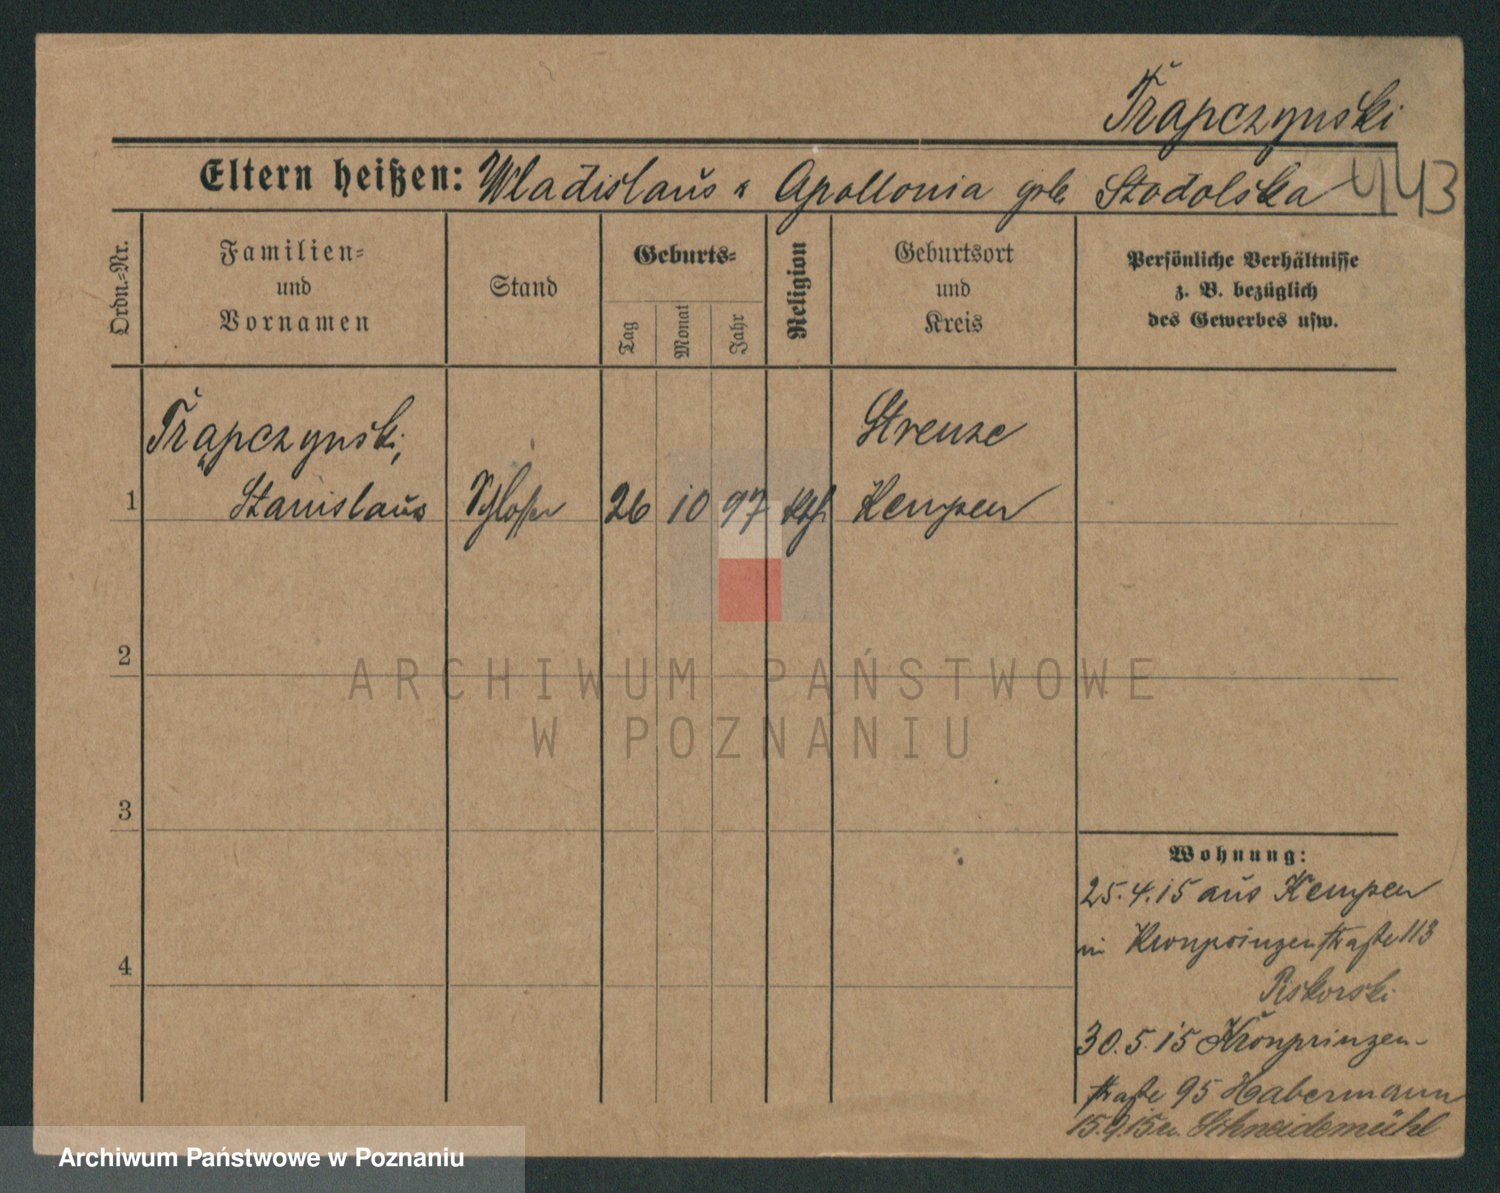 Trąpczynski
Eltern heißen: Wladislaus u Apollonia geb. Stodolska 443
Ordn.-Nr.
Familien-
und
Vornamen
Stand
Geburts-
Tag
Monat
Jahr
Religion
Geburtsort
und
Kreis
Persönliche Verhältnisse
z. B. bezüglich
des Gewerbes usw.
Trąpczynski,
Strenze
1 Stanislaus Schlosser 26 10 97 kth. Kempen
2
ARCHIWUM PAŃSTWOWE
W POZNANIU
3
4
Wohnung:
25.4.15 aus Kempen
in Kronprinzenstraße 113
Piskorski
30.5.15 Kronprinzen-
straße 95 Habermann
15.9.15 n. Schneidemühl
Archiwum Państwowe w Poznaniu